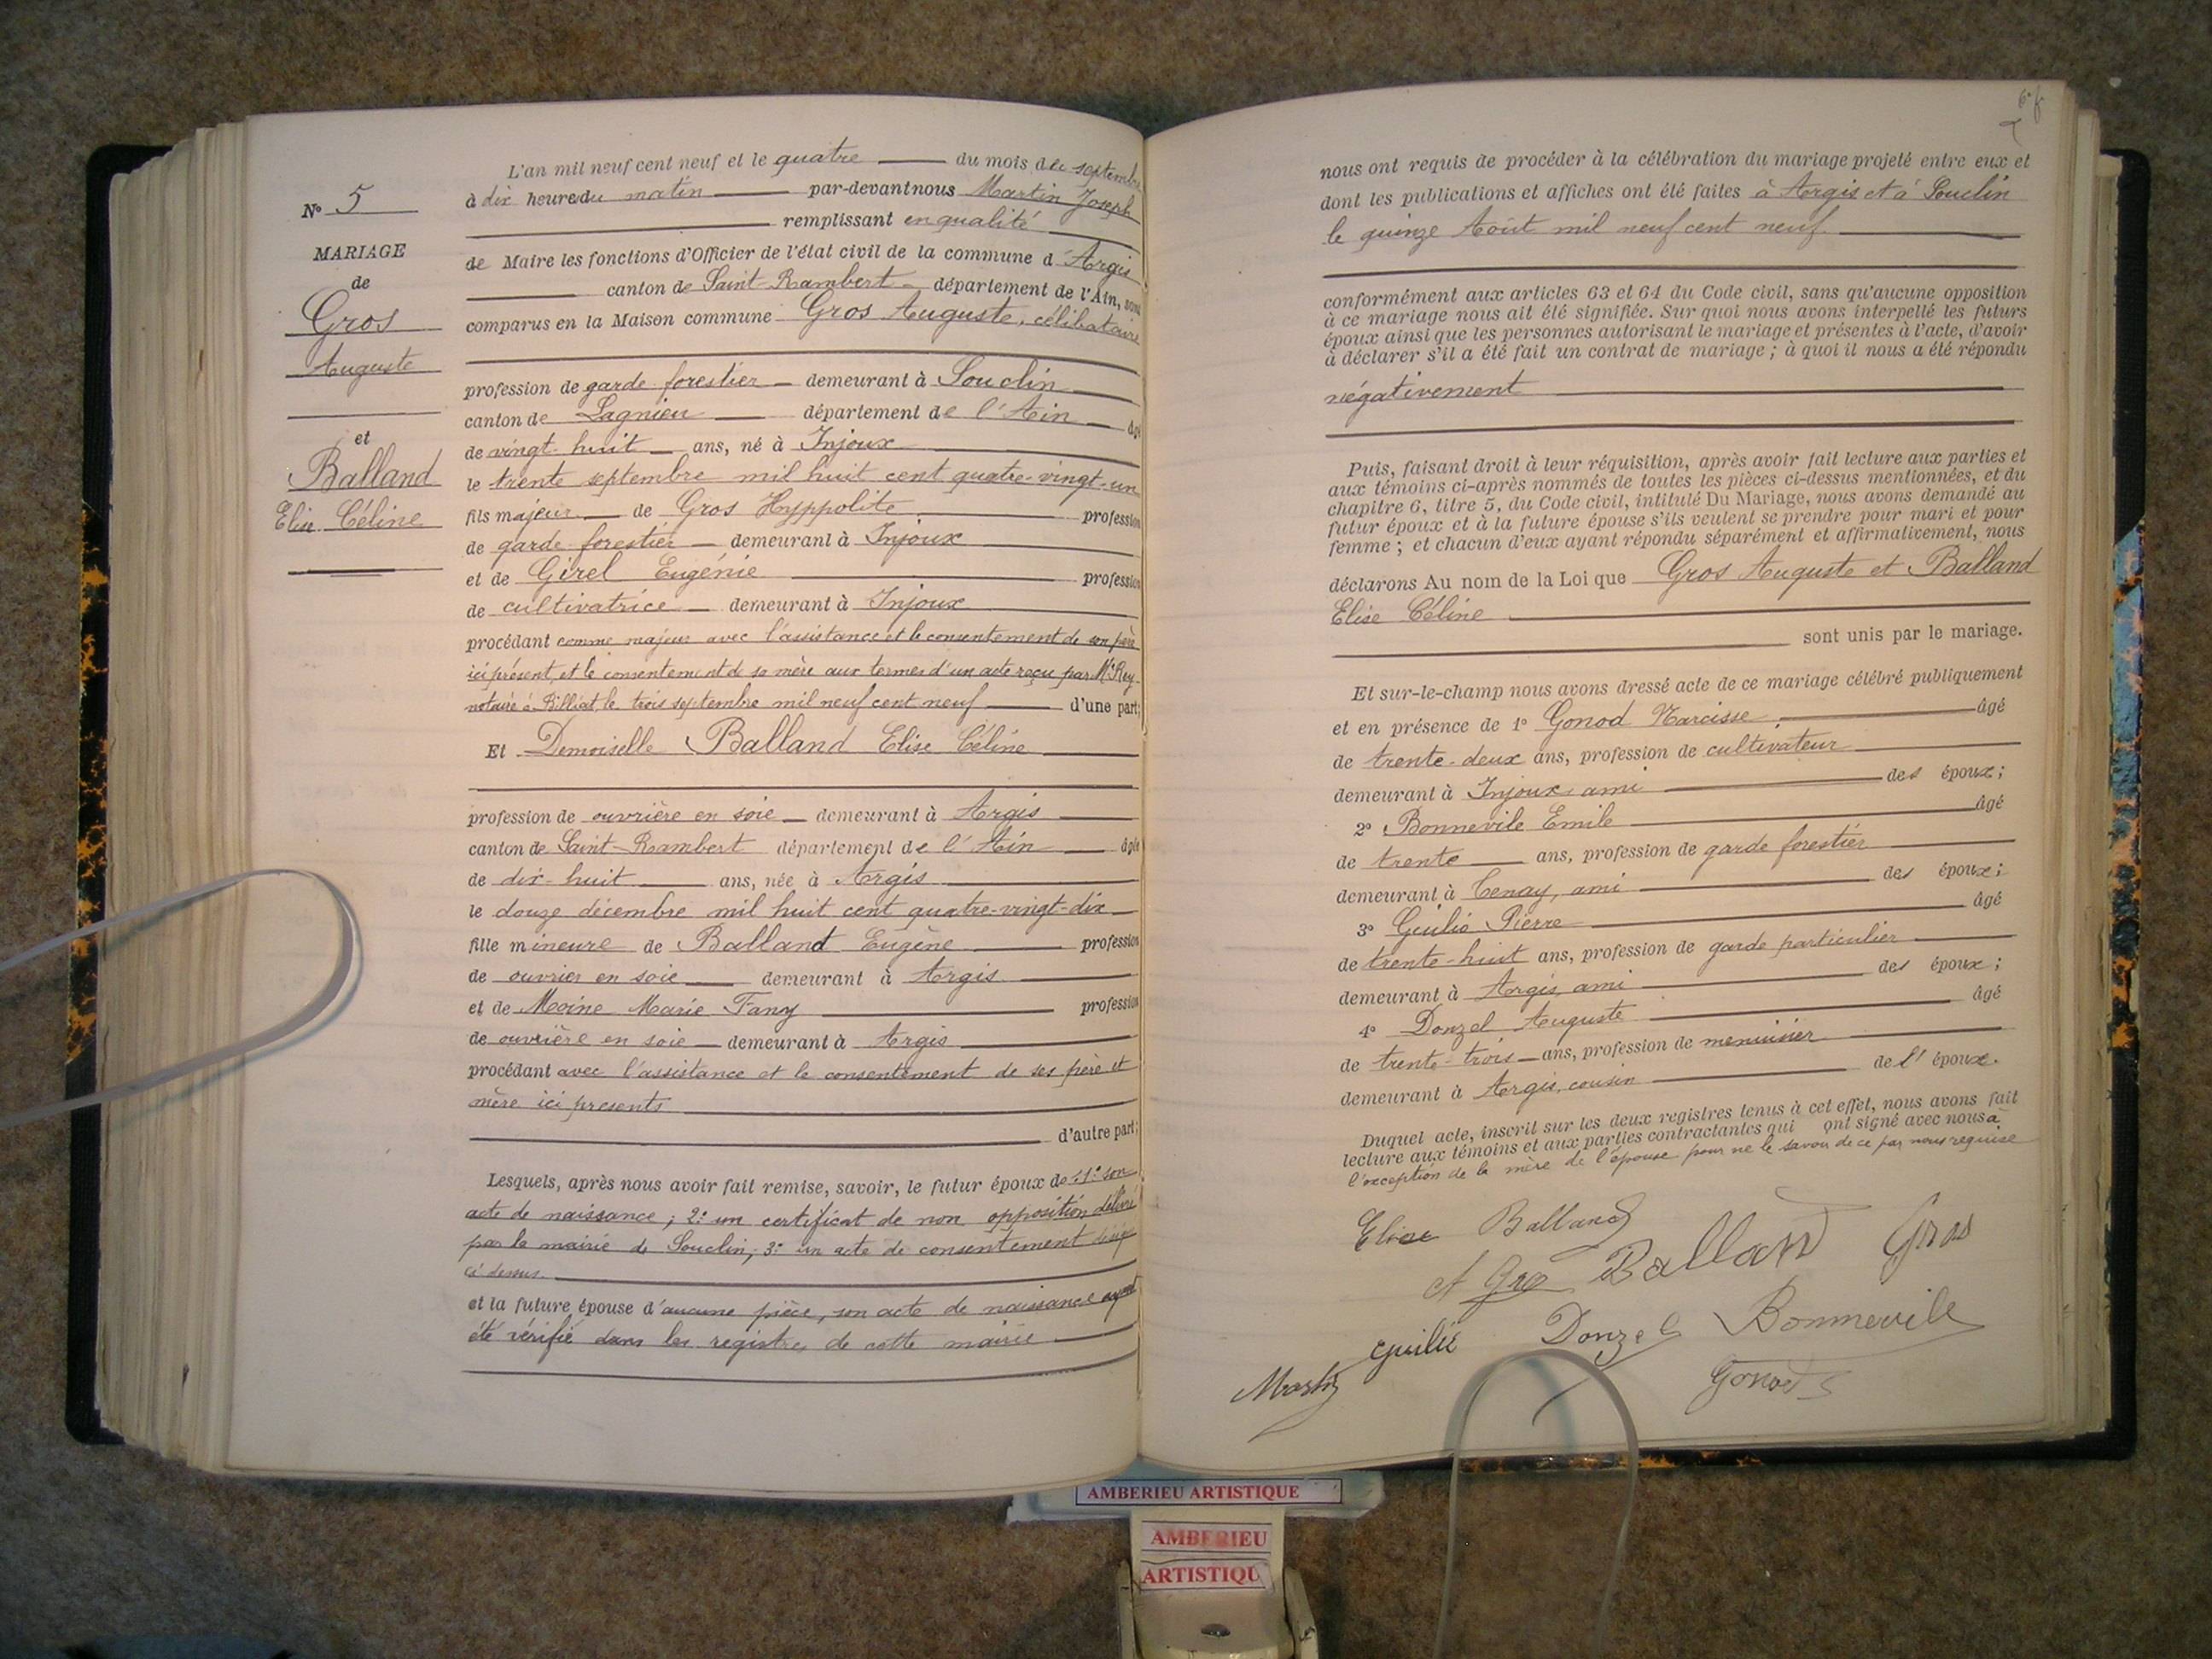 N° 5
MARIAGE
de
Gros
Auguste
et
Balland
Elise Céline
L'an mil neuf cent neuf et le quatre du mois de septembre
à dix heure du matin par-devant nous Martin Joseph
remplissant en qualité
de Maire les fonctions d'Officier de l'état civil de la commune d'Argis
canton de Saint-Rambert département de l'Ain, sont
comparus en la Maison commune Gros Auguste, célibataire
profession de garde forestier demeurant à Souclin
canton de Lagnieu département de l'Ain âgé
de vingt huit ans, né à Injoux
le trente septembre mil huit cent quatre-vingt-un
fils majeur de Gros Hyppolite profession
de garde forestier demeurant à Injoux
et de Girel Eugénie profession
de cultivatrice demeurant à Injoux
procédant comme majeur avec l'assistance et le consentement de son père
ici présent, et le consentement de sa mère aux termes d'un acte reçu par Me Rey
notaire à Billiat, le trois septembre mil neuf cent neuf d'une part;
Et Demoiselle Balland Elise Céline
profession de ouvrière en soie demeurant à Argis
canton de Saint-Rambert département de l'Ain âgée
de dix-huit ans, née à Argis
le douze décembre mil huit cent quatre-vingt-dix
fille mineure de Balland Eugène profession
de ouvrier en soie demeurant à Argis
et de Moine Marie Fany profession
de ouvrière en soie demeurant à Argis
procédant avec l'assistance et le consentement de ses père et
mère ici presents
d'autre part;
Lesquels, après nous avoir fait remise, savoir, le futur époux de 1° son
acte de naissance; 2° un certificat de non opposition délivré
par la mairie de Souclin; 3° un acte de consentement
ci dessus.
et la future épouse d'aucune pièce, son acte de naissance ayant
été vérifié dans les registres de cette mairie
nous ont requis de procéder à la célébration du mariage projeté entre eux et
dont les publications et affiches ont été faites à Argis et à Souclin
le quinze Août mil neuf cent neuf
conformément aux articles 63 et 64 du Code civil, sans qu'aucune opposition
à ce mariage nous ait été signifiée. Sur quoi nous avons interpellé les futurs
époux ainsi que les personnes autorisant le mariage et présentes à l'acte, d'avoir
à déclarer s'il a été fait un contrat de mariage; à quoi il nous a été répondu
négativement
Puis, faisant droit à leur réquisition, après avoir fait lecture aux parties et
aux témoins ci-après nommés de toutes les pièces ci-dessus mentionnées, et du
chapitre 6, titre 5, du Code civil, intitulé Du Mariage, nous avons demandé au
futur époux et à la future épouse s'ils veulent se prendre pour mari et pour
femme; et chacun d'eux ayant répondu séparément et affirmativement, nous
déclarons Au nom de la Loi que Gros Auguste et Balland
Elise Céline
sont unis par le mariage.
Et sur-le-champ nous avons dressé acte de ce mariage célébré publiquement
et en présence de 1° Gonod Narcisse âgé
de trente-deux ans, profession de cultivateur
demeurant à Injoux ami des époux;
2° Bonnevile Emile âgé
de trente ans, profession de garde forestier
demeurant à Tenay, ami des époux;
3° Giulio Pierre âgé
de trente-huit ans, profession de garde particulier
demeurant à Argis, ami des époux;
4° Donzel Auguste âgé
de trente-trois ans, profession de menuisier
demeurant à Argis, cousin de l'époux.
Duquel acte, inscrit sur les deux registres tenus à cet effet, nous avons fait
lecture aux témoins et aux parties contractantes qui ont signé avec nous à
l'exception de la mère de l'épouse pour ne le savoir de ce par nous requise
Elise Balland
A Gros Balland Gros
Donzel Bonnevile
Martin Gonod
AMBERIEU ARTISTIQUE
AMBERIEU
ARTISTIQU